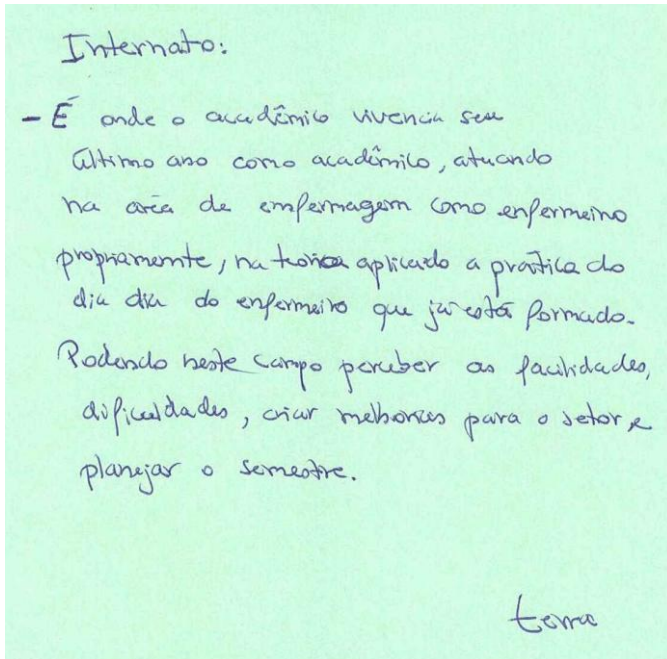 Internato:
- É onde o acadêmico vivencia seu
último ano como acadêmico, atuando
na área de enfermagem como enfermeiro
propriamente, na teoria aplicado a prática do
dia dia do enfermeiro que já está formado.
Podendo neste campo perceber as facilidades,
dificuldades, criar melhorias para o setor, e
planejar o semestre.
terra